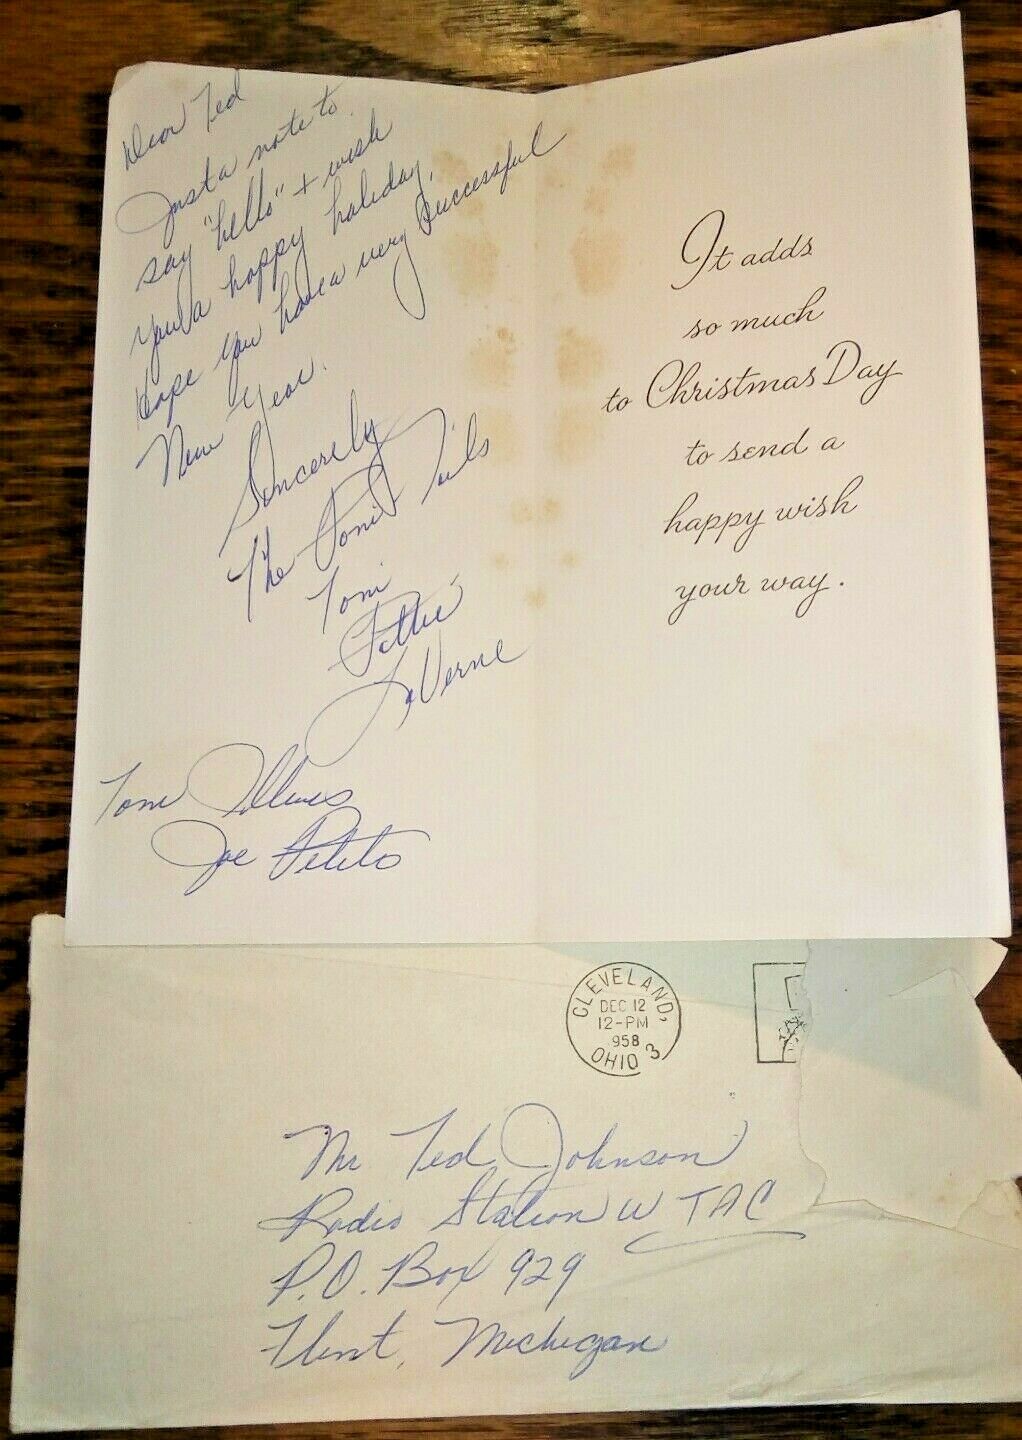 Dear Ted
Just a note to
say "hello" + wish
you a happy holiday.
Hope you have a very successful
New Year.
Sincerely
The Toni Tails
Toni
Pattie
LaVerne
Toni
Joe Petito
It adds
so much
to Christmas Day
to send a
happy wish
your way.
CLEVELAND,
DEC 12
12-PM
958
OHIO 3
Mr Ted Johnson
Radio Station W TAC
P.O. Box 929
Flint, Michigan